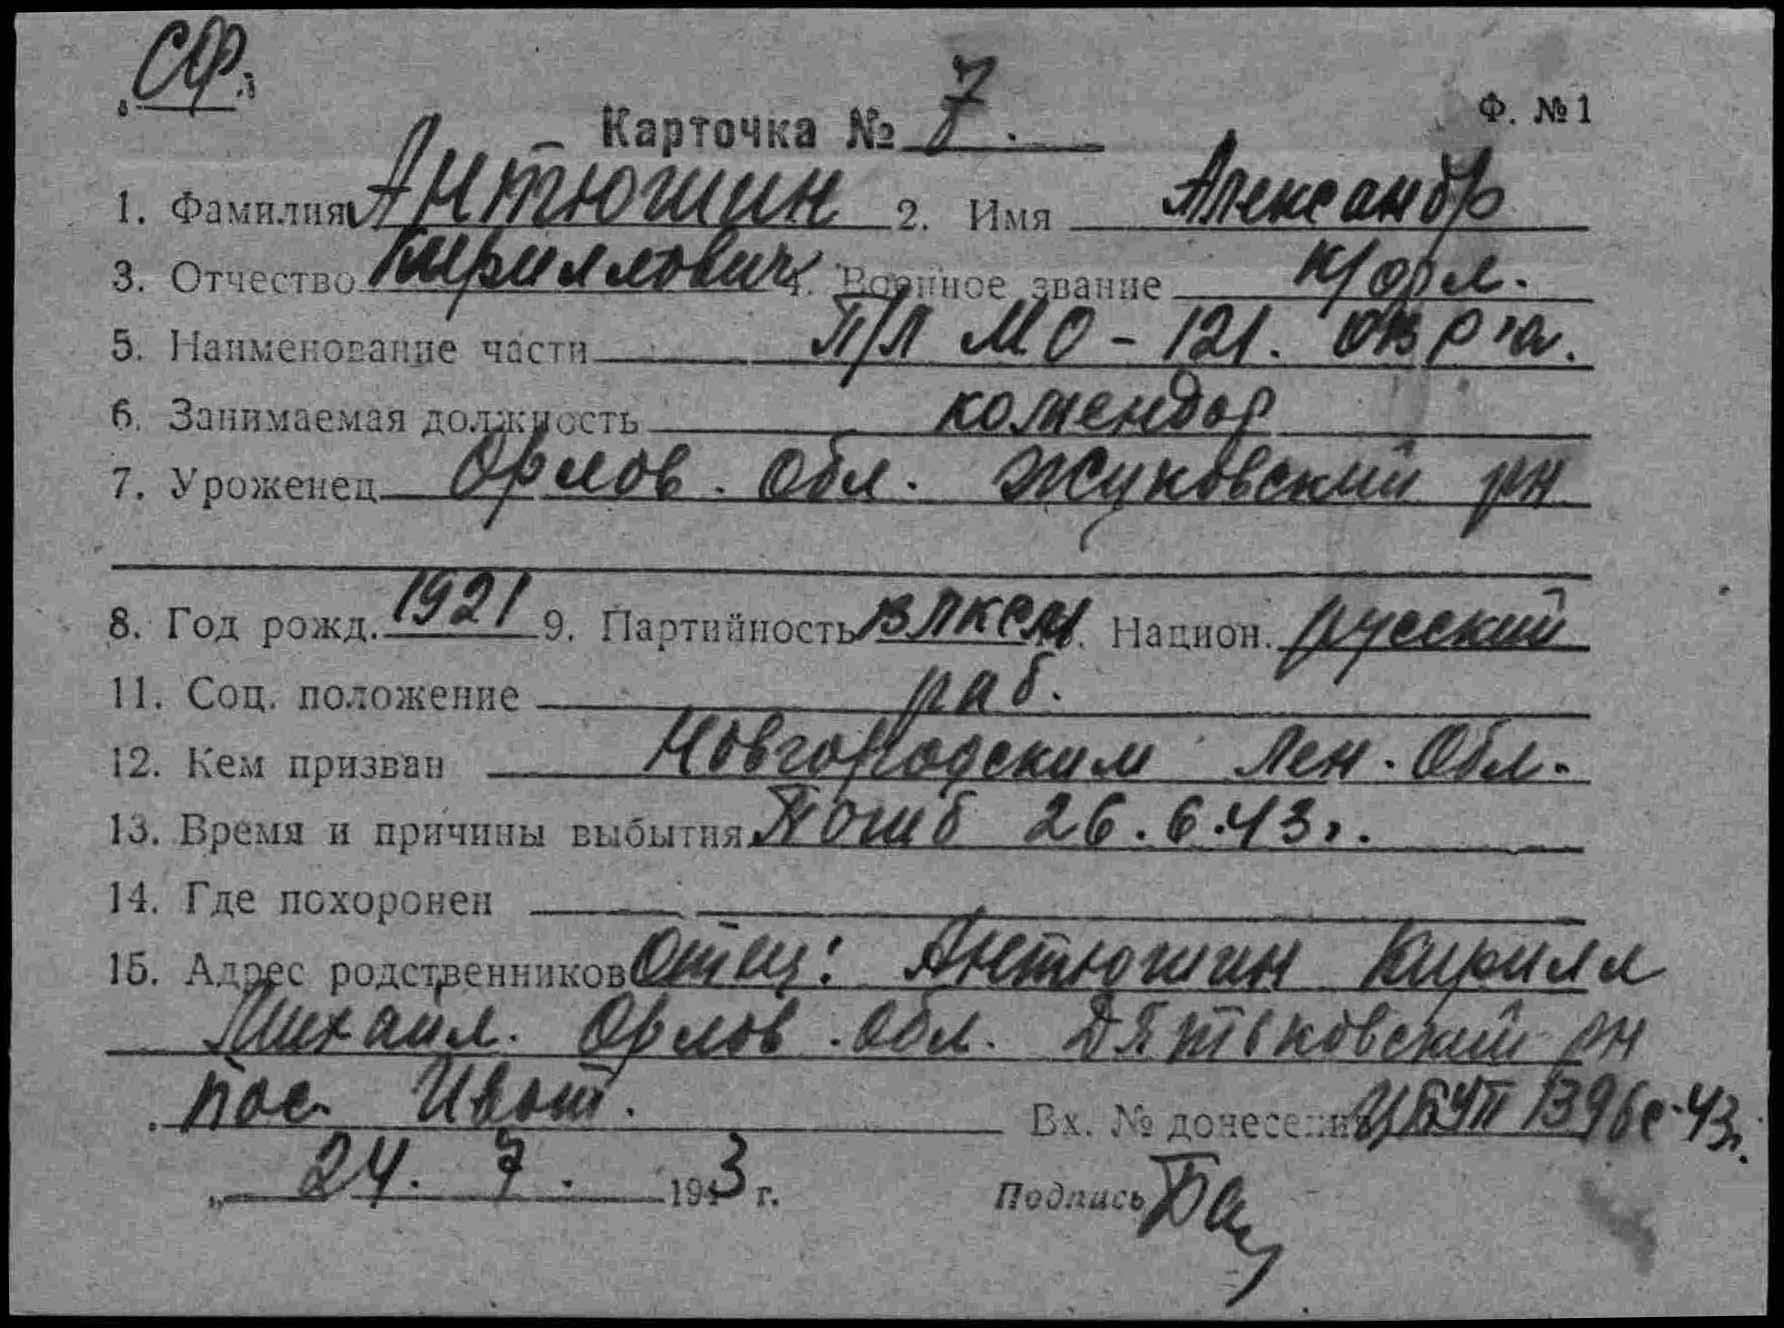 „СФ“
Карточка № 7.
Ф. №1
1. Фамилия Антюшин 2. Имя Александр
3. Отчество Кириллович 4. Военное звание к/фл.
5. Наименование части П/Л МО-121. ОВР'а.
6. Занимаемая должность комендор
7. Уроженец Орлов. Обл. Жуковский рн
8. Год рожд. 1921 9. Партийность ВЛКСМ Национ. русский
11. Соц. положение раб.
12. Кем призван Новгородским Лен. Обл.
13. Время и причины выбытия Погиб 26.6.43г.
14. Где похоронен
15. Адрес родственников Отец: Антюшин Кирилл
Михаил. Орлов. обл. Дятьковский рн
пос. Ивот. Вх. № донесения ЦБУП 1396с-43г.
„ 24. 7. 1943 г. Подпись